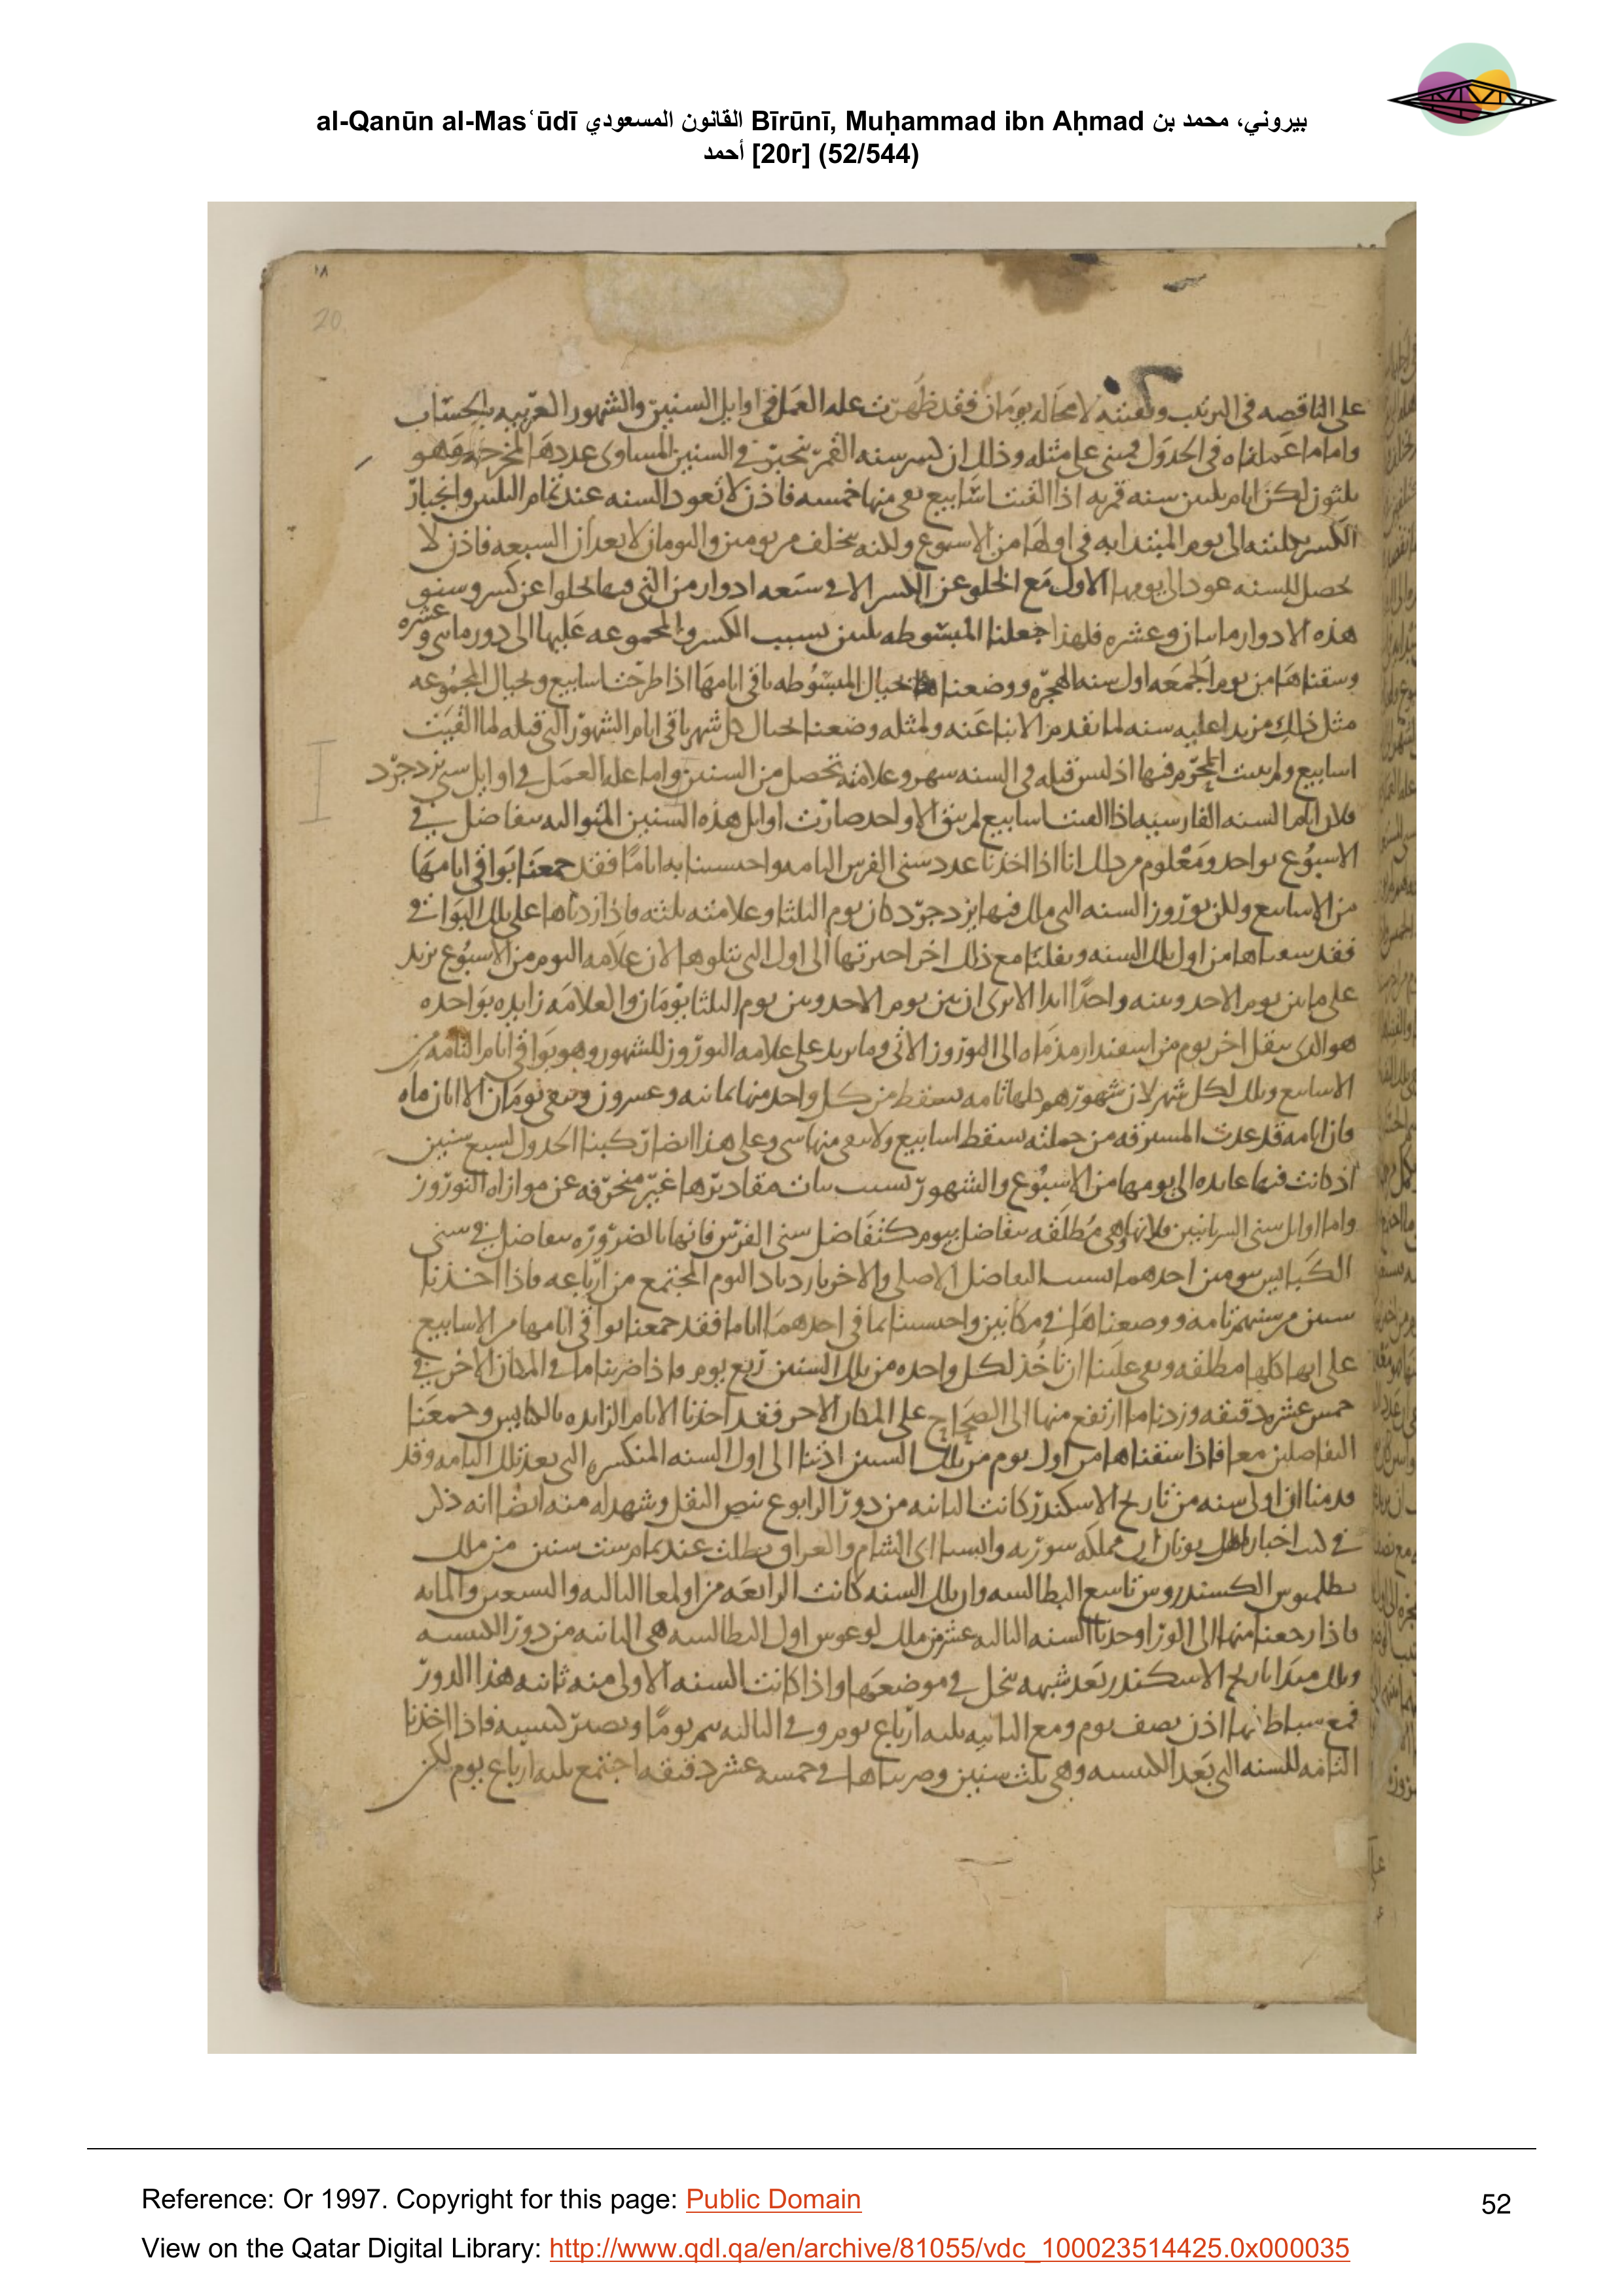 al-Qanūn al-Masʿūdī القانون المسعودي Bīrūnī, Muḥammad ibn Aḥmad بيروني، محمد بن
أحمد [20r] (52/544)
١٨
20
على الناقصه فى الترتيب وبقيته لا محاله يومان فقد ظهرت عله العمل فى اوايل السنين والشهور العربيه بالحساب
واما ما عملناه فى الجدول فمبنى على مثله وذلك ان كسر سنه القمر ينجبر فى السنين المساوى عددها لمخرجه وهو
ثلثون لكن ايام ثلثين سنه قمريه اذا القيت اسابيع بقى منها خمسه فاذن لا تعود السنه عند تمام الثلثين وانجبار
الكسر بكليته الى يوم المبتدا به فى اولها من الاسبوع ولكنه يتخلف بيومين واليومان لا يعدان السبعه فاذن لا
يحصل للسنه عود الى يومها الاول مع الخلو عن الكسر الا فى سبعه ادوار من التى فيها يخلوا عن كسر وسنو
هذه الادوار مايتان وعشره فلهذا جعلنا المبسوطه ثلثين بسبب الكسر والمجموعه عليها الى دور مايتى وعشره
وسقناها من يوم الجمعه اول سنه الهجره ووضعنا بحيال المبسوطه باقى ايامها اذا طرحت اسابيع وبحيال المجموعه
مثل ذلك مزيدا عليه سنه لما تقدم من الانبا عنه ولمثله وضعنا بحيال كل شهر باقى ايام الشهور التى قبله لما القيت
اسابيع ولم يثبت المحرم فيها اذ ليس قبله فى السنه شهر وعلامته تحصل من السنين واما عله العمل فى اوايل سنى يزدجرد
فلان ايام السنه الفارسيه اذا القيت اسابيع لم يبق الا واحد صارت اوايل هذه السنين المتواليه يتفاضل فى
الاسبوع بواحد ومعلوم من ذلك انا اذا اخذنا عدد سنى الفرس التامه واحتسبنا به اياما فقد جمعنا بواقى ايامها
من الاسابيع ولكن نوروز السنه التى ملك فيها يزدجرد كان يوم الثلثا وعلامته ثلثه فاذا زدناها على تلك البواقى
فقد سقناها من اول تلك السنه ونقلنا مع ذلك اخر اخيرتها الى اول التى يتلوها لان علامه اليوم من الاسبوع يزيد
على ما بين يوم الاحد وبينه واحدا ابدا الا ترى ان بين يوم الاحد وبين يوم الثلثا يومان والعلامه زايده بواحده
هو الذى ينقل اخر يوم من اسفندارمذ ماه الى النوروز الاتى وما يزيد على علامه النوروز للشهور وهو بواقى ايام التامه من
الاسابيع وتلك لكل شهر لان شهورهم كلها تامه يسقط من كل واحد منها ثمانيه وعشرون ويبقى يومان الا ابان ماه
فان ايامه قد عدت المسترقه من جملته يسقط اسابيع ولا يبقى منها شى وعلى هذا ايضا ركبنا الجدول لسبع سنين
اذ كانت فيها عايده الى يومها من الاسبوع والشهور بسبب ثبات مقاديرها غير منحرفه عن موازاه النوروز
واما اوايل سنى السريانيين فلانها وهى مطلقه يتفاضل بيوم كتفاضل سنى الفرس فانها بالضروره يتفاضل فى سنى
الكبايس بيومين احدهما بسبب التفاضل الاصلى والاخر بازدياد اليوم المجتمع من ارباعه فاذا اخذنا
سنين من سنيهم تامه ووضعناها فى مكانين واحتسبنا بما فى احدهما اياما فقد جمعنا بواقى ايامها من الاسابيع
على انها كلها مطلقه وبقى علينا ان ناخذ لكل واحده من تلك السنين ربع يوم فاذا ضربنا ما فى المكان الاخر فى
خمس عشره دقيقه وزدنا ما ارتفع منها الى الصحاح على المكان الاخر فقد اخذنا الايام الزايده بالكبايس وجمعنا
التفاضلين معا فاذا سقناها من اول يوم من تلك السنين ادتنا الى اول السنه المنكسره التى بعد تلك التامه وقد
قدمنا ان اولى سنه من تاريخ الاسكندر كانت الثانيه من دور الرابوع بنص النقل وشهد له منه ايضا انه ذكر
فى كتب اخبار اهل يونان ان مملكه سوريه واسيا اى الشام والعراق بطلت عند تمام ست سنين من ملك
بطلميوس الكسندروس تاسع البطالسه وان تلك السنه كانت الرابعه من اولمفيا الثالثه والسبعين والمايه
فاذا رجعنا منها الى الورا وجدنا السنه الثالثه عشر من ملك لوغوس اول البطالسه هى الثانيه من دور الكبيسه
وتلك مبدا تاريخ الاسكندر بعد شبهه ينحل فى موضعها واذا كانت السنه الاولى منه ثانيه هذا الدور
فمع سباط منها اذن نصف يوم ومع الثانيه ثلثه ارباع يوم وفى الثالثه يتم يوما ويصير كبيسه فاذا اخذنا
التامه للسنه التى بعد الكبيسه وهى ثلث سنين وضربناها فى خمسه عشر دقيقه اجتمع ثلثه ارباع يوم لكن
Reference: Or 1997. Copyright for this page: Public Domain
52
View on the Qatar Digital Library: http://www.qdl.qa/en/archive/81055/vdc_100023514425.0x000035